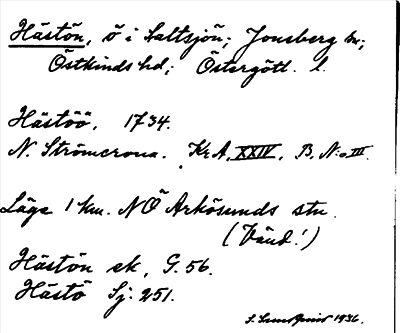 Hästön, ö i Saltsjön; Jonsberg sn;
Östkinds hd; Östergötl. l.
Hästöö, 1734.
N. Strömcrona. Kr A, XXIV, B, N:o III.
Läge 1 km. NÖ Arkösunds stn.
(Vänd!)
Hästön ek, G. 56.
Hästö Sj. 251.
1936.